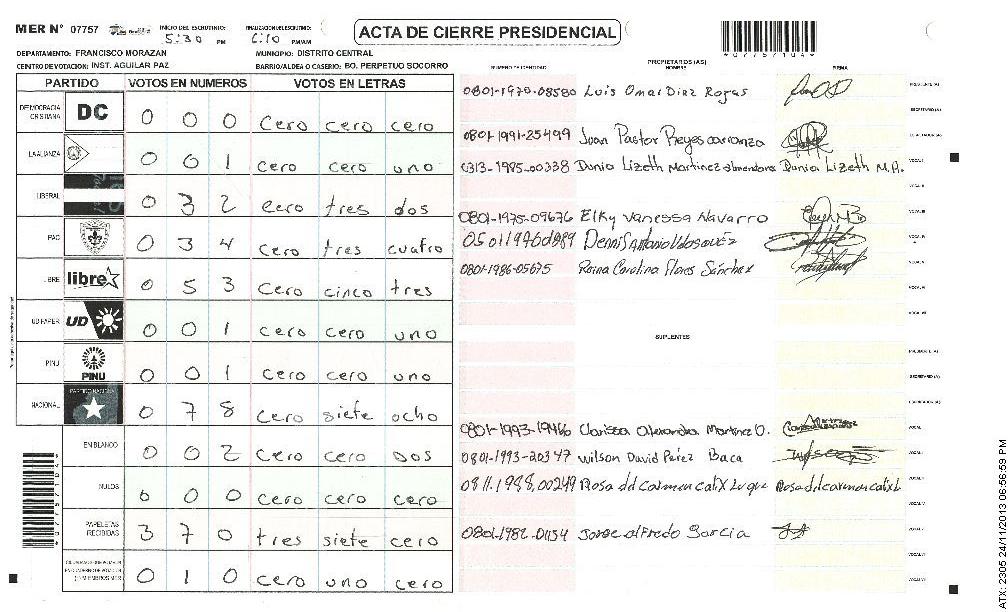 MER Nº 07757 INICIO DEL ESCRUTINIO: 5:30 PM FINALIZACION DEL ESCRUTINIO: 6:10 PM/AM
ACTA DE CIERRE PRESIDENCIAL
*07757104*
DEPARTAMENTO: FRANCISCO MORAZAN MUNICIPIO: DISTRITO CENTRAL
CENTRO DE VOTACION: INST. AGUILAR PAZ BARRIO/ALDEA O CASERIO: BO. PERPETUO SOCORRO
PARTIDO VOTOS EN NUMEROS VOTOS EN LETRAS
DEMOCRACIA CRISTIANA DC 0 0 0 cero cero cero
LA ALIANZA 0 0 1 cero cero uno
LIBERAL 0 3 2 cero tres dos
PAC 0 3 4 cero tres cuatro
LIBRE libre 0 5 3 cero cinco tres
UD FAPER UD 0 0 1 cero cero uno
PINU PINU 0 0 1 cero cero uno
NACIONAL PARTIDO NACIONAL 0 7 8 cero siete ocho
EN BLANCO 0 0 2 cero cero Dos
NULOS 0 0 0 cero cero cero
PAPELETAS RECIBIDAS 3 7 0 tres siete cero
0 1 0 cero uno cero
NUMERO DE IDENTIDAD PROPIETARIOS (AS) NOMBRE FIRMA
0801-1970-08580 Luis Omar Diaz Rojas PRESIDENTE (A)
SECRETARIO (A)
0801-1991-25499 Juan Pastor Reyes carranza ESCRUTADOR (A)
0313-1985-00338 Dania Lizeth Martinez almendares Dania Lizeth M.A. VOCAL I
VOCAL II
0801-1975-09676 Elky Vanessa Navarro VOCAL III
Dennis Antonio Velasquez VOCAL IV
0801-1986-05675 Reina Carolina Flores Sánchez VOCAL V
VOCAL VI
VOCAL VII
SUPLENTES
PRESIDENTE (A)
SECRETARIO (A)
ESCRUTADOR (A)
0801-1993-19466 Clarissa alexandra Martinez O. VOCAL I
0801-1993-20347 Wilson David Perez Baca
0811.1988.00249 Rosa del carmen calix Luque Rosa del carmen calix L
0801-1982-01154 Jorge alfredo Garcia
ATX: 2305 24/11/2013 06:56:59 PM